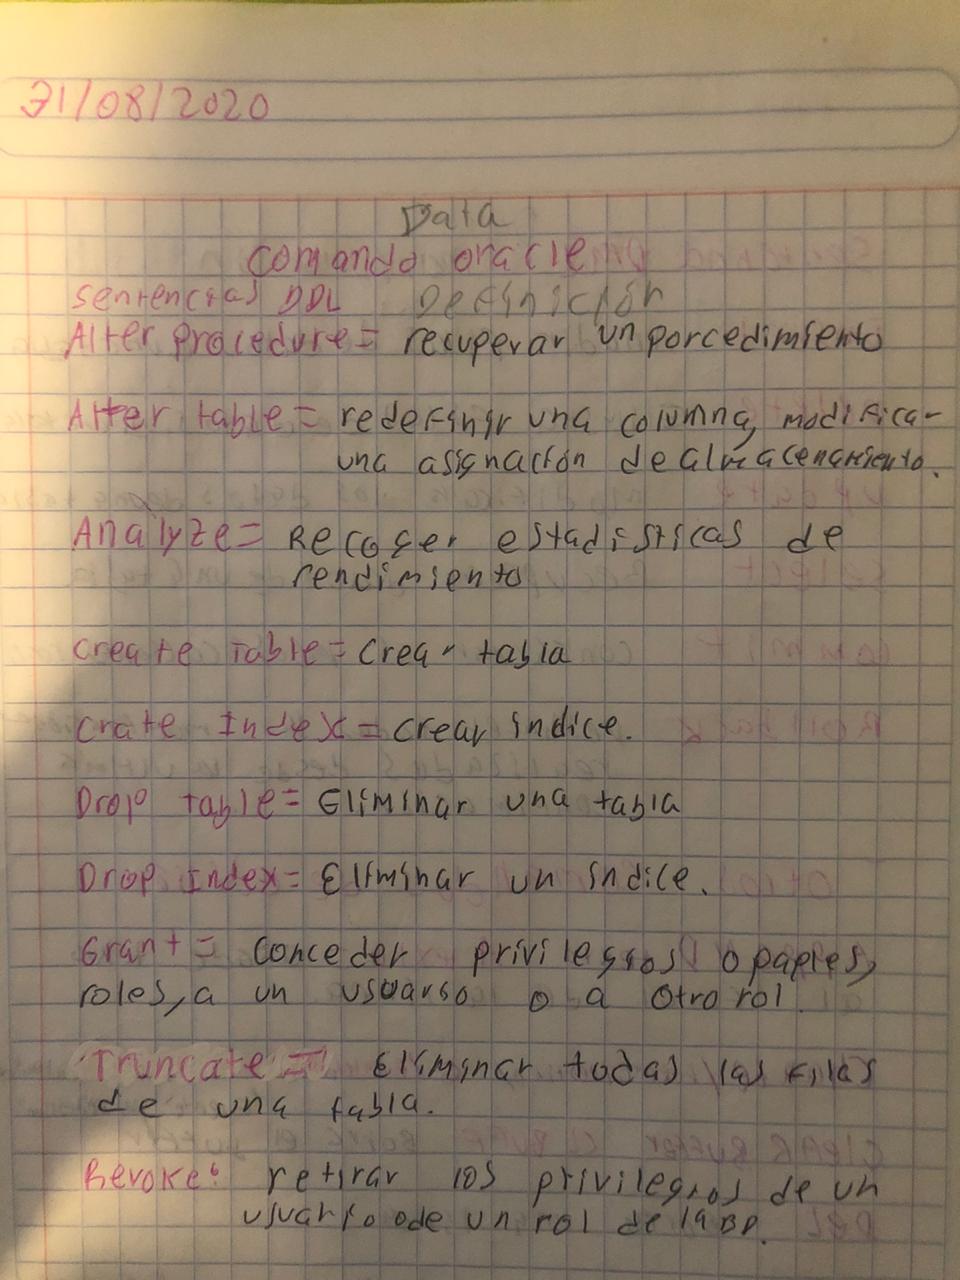 31/08/2020
Data
comando oracle
sentencias DDL Definición
Alter procedure = recuperar un porcedimiento
Alter table = redefinir una columna, modifica-
una asignación de almacenamiento.
Analyze = Recoger estadisticas de
rendimiento
create table = crear tabla
crate Index = crear indice.
Drop table = Eliminar una tabla
Drop Index = Eliminar un indice.
Grant = conceder privilegios o paples,
roles, a un usuario o a otro rol.
Truncate = Eliminar todas las filas
de una tabla.
Revoke: retirar los privilegios de un
usuario o de un rol de la BD.